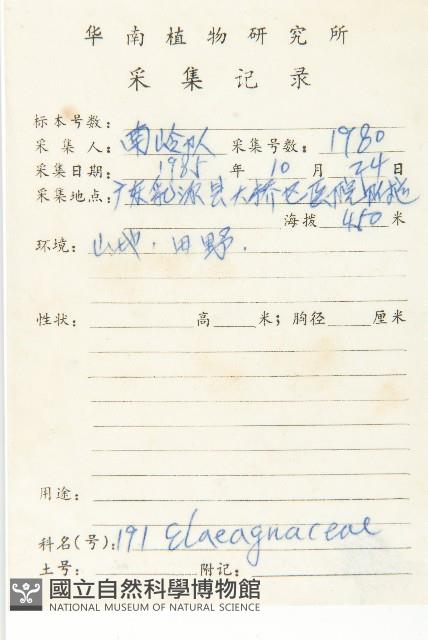 华南植物研究所
采集记录
标本号数:
采集人: 南岭队 采集号数: 1980
采集日期: 1985 年 10 月 24 日
采集地点: 广东乳源县大桥区医院附近
海拨 450 米
环境: 山地.田野.
性状: 高 米; 胸径 厘米
用途:
科名(号): 191 Elaeagnaceae
土号: 附记:
國立自然科學博物館
NATIONAL MUSEUM OF NATURAL SCIENCE